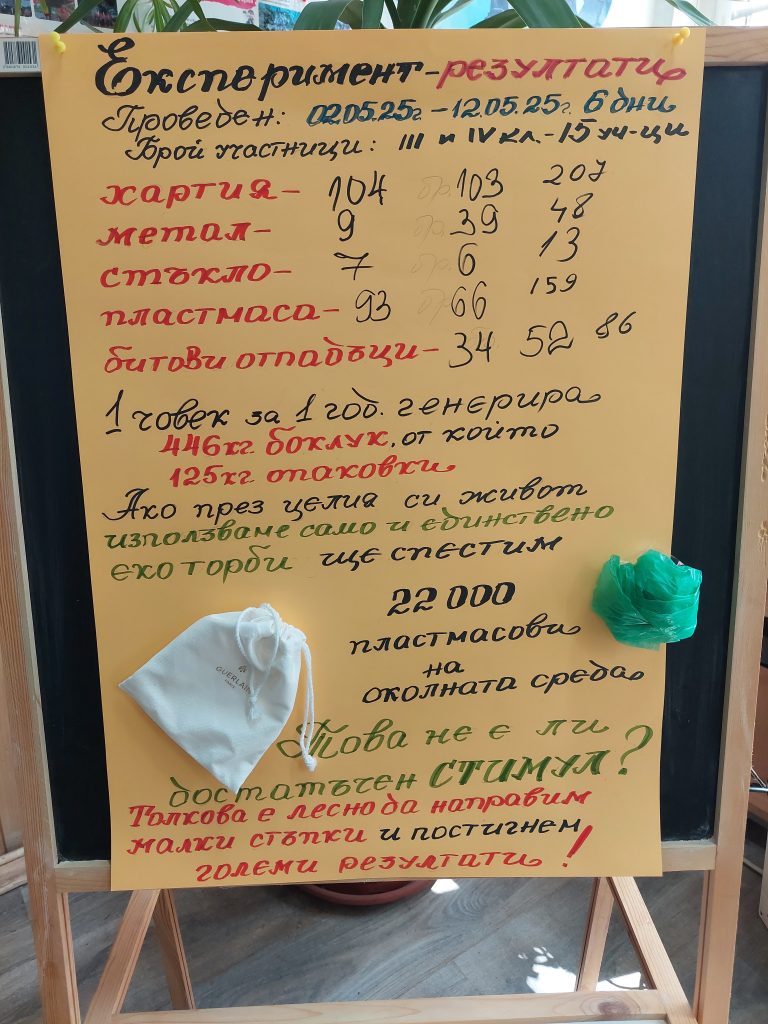 Експеримент-резултати
Проведен: 02.05.25г. – 12.05.25г. 6 дни
Брой участници: III и IV кл.-15 уч-ци
хартия– 104 бр. 103 207
метал– 9 бр. 39 48
стъкло– 7 бр. 6 13
пластмаса– 93 бр. 66 159
битови отпадъци– 34 52 86
1 човек за 1 год. генерира
446кг боклук, от който
125кг опаковки
Ако през целия си живот
използваме само и единствено
еко торби ще спестим
22 000
пластмасови
на
околната среда
GUERLAIN
PARIS
Това не е ли
достатъчен СТИМУЛ?
Толкова е лесно да направим
малки стъпки и постигнем
големи резултати!